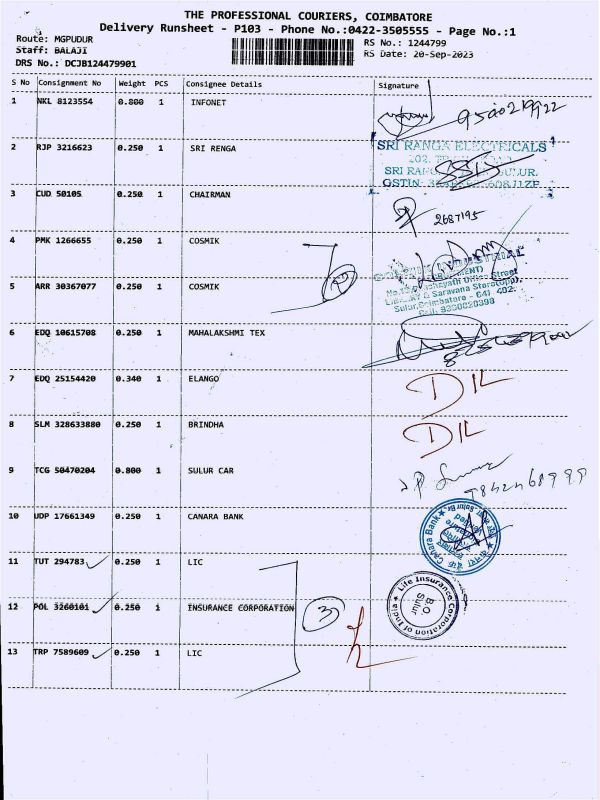 THE PROFESSIONAL COURIERS, COIMBATORE
Delivery Runsheet - P103 - Phone No.:0422-3505555 - Page No.:1
Route: MGPUDUR RS No.: 1244799
Staff: BALAJI RS Date: 20-Sep-2023
DRS No.: DCJB124479901
S No Consignment No Weight PCS Consignee Details Signature
1 NKL 8123554 0.800 1 INFONET
2 RJP 3216623 0.250 1 SRI RENGA
SRI RANGA ELECTRICALS
3 CUD 50105 0.250 1 CHAIRMAN
2687195
4 PMK 1266655 0.250 1 COSMIK
5 ARR 30367077 0.250 1 COSMIK
6 EDQ 10615708 0.250 1 MAHALAKSHMI TEX
7 EDQ 25154420 0.340 1 ELANGO D/L
8 SLM 328633880 0.250 1 BRINDHA D/L
9 TCG 50470204 0.800 1 SULUR CAR
10 UDP 17661349 0.250 1 CANARA BANK
Canara Bank
11 TUT 294783 0.250 1 LIC
12 POL 3260101 0.250 1 INSURANCE CORPORATION 3
Life Insurance Corporation of India
B.O
Sulur
13 TRP 7589609 0.250 1 LIC